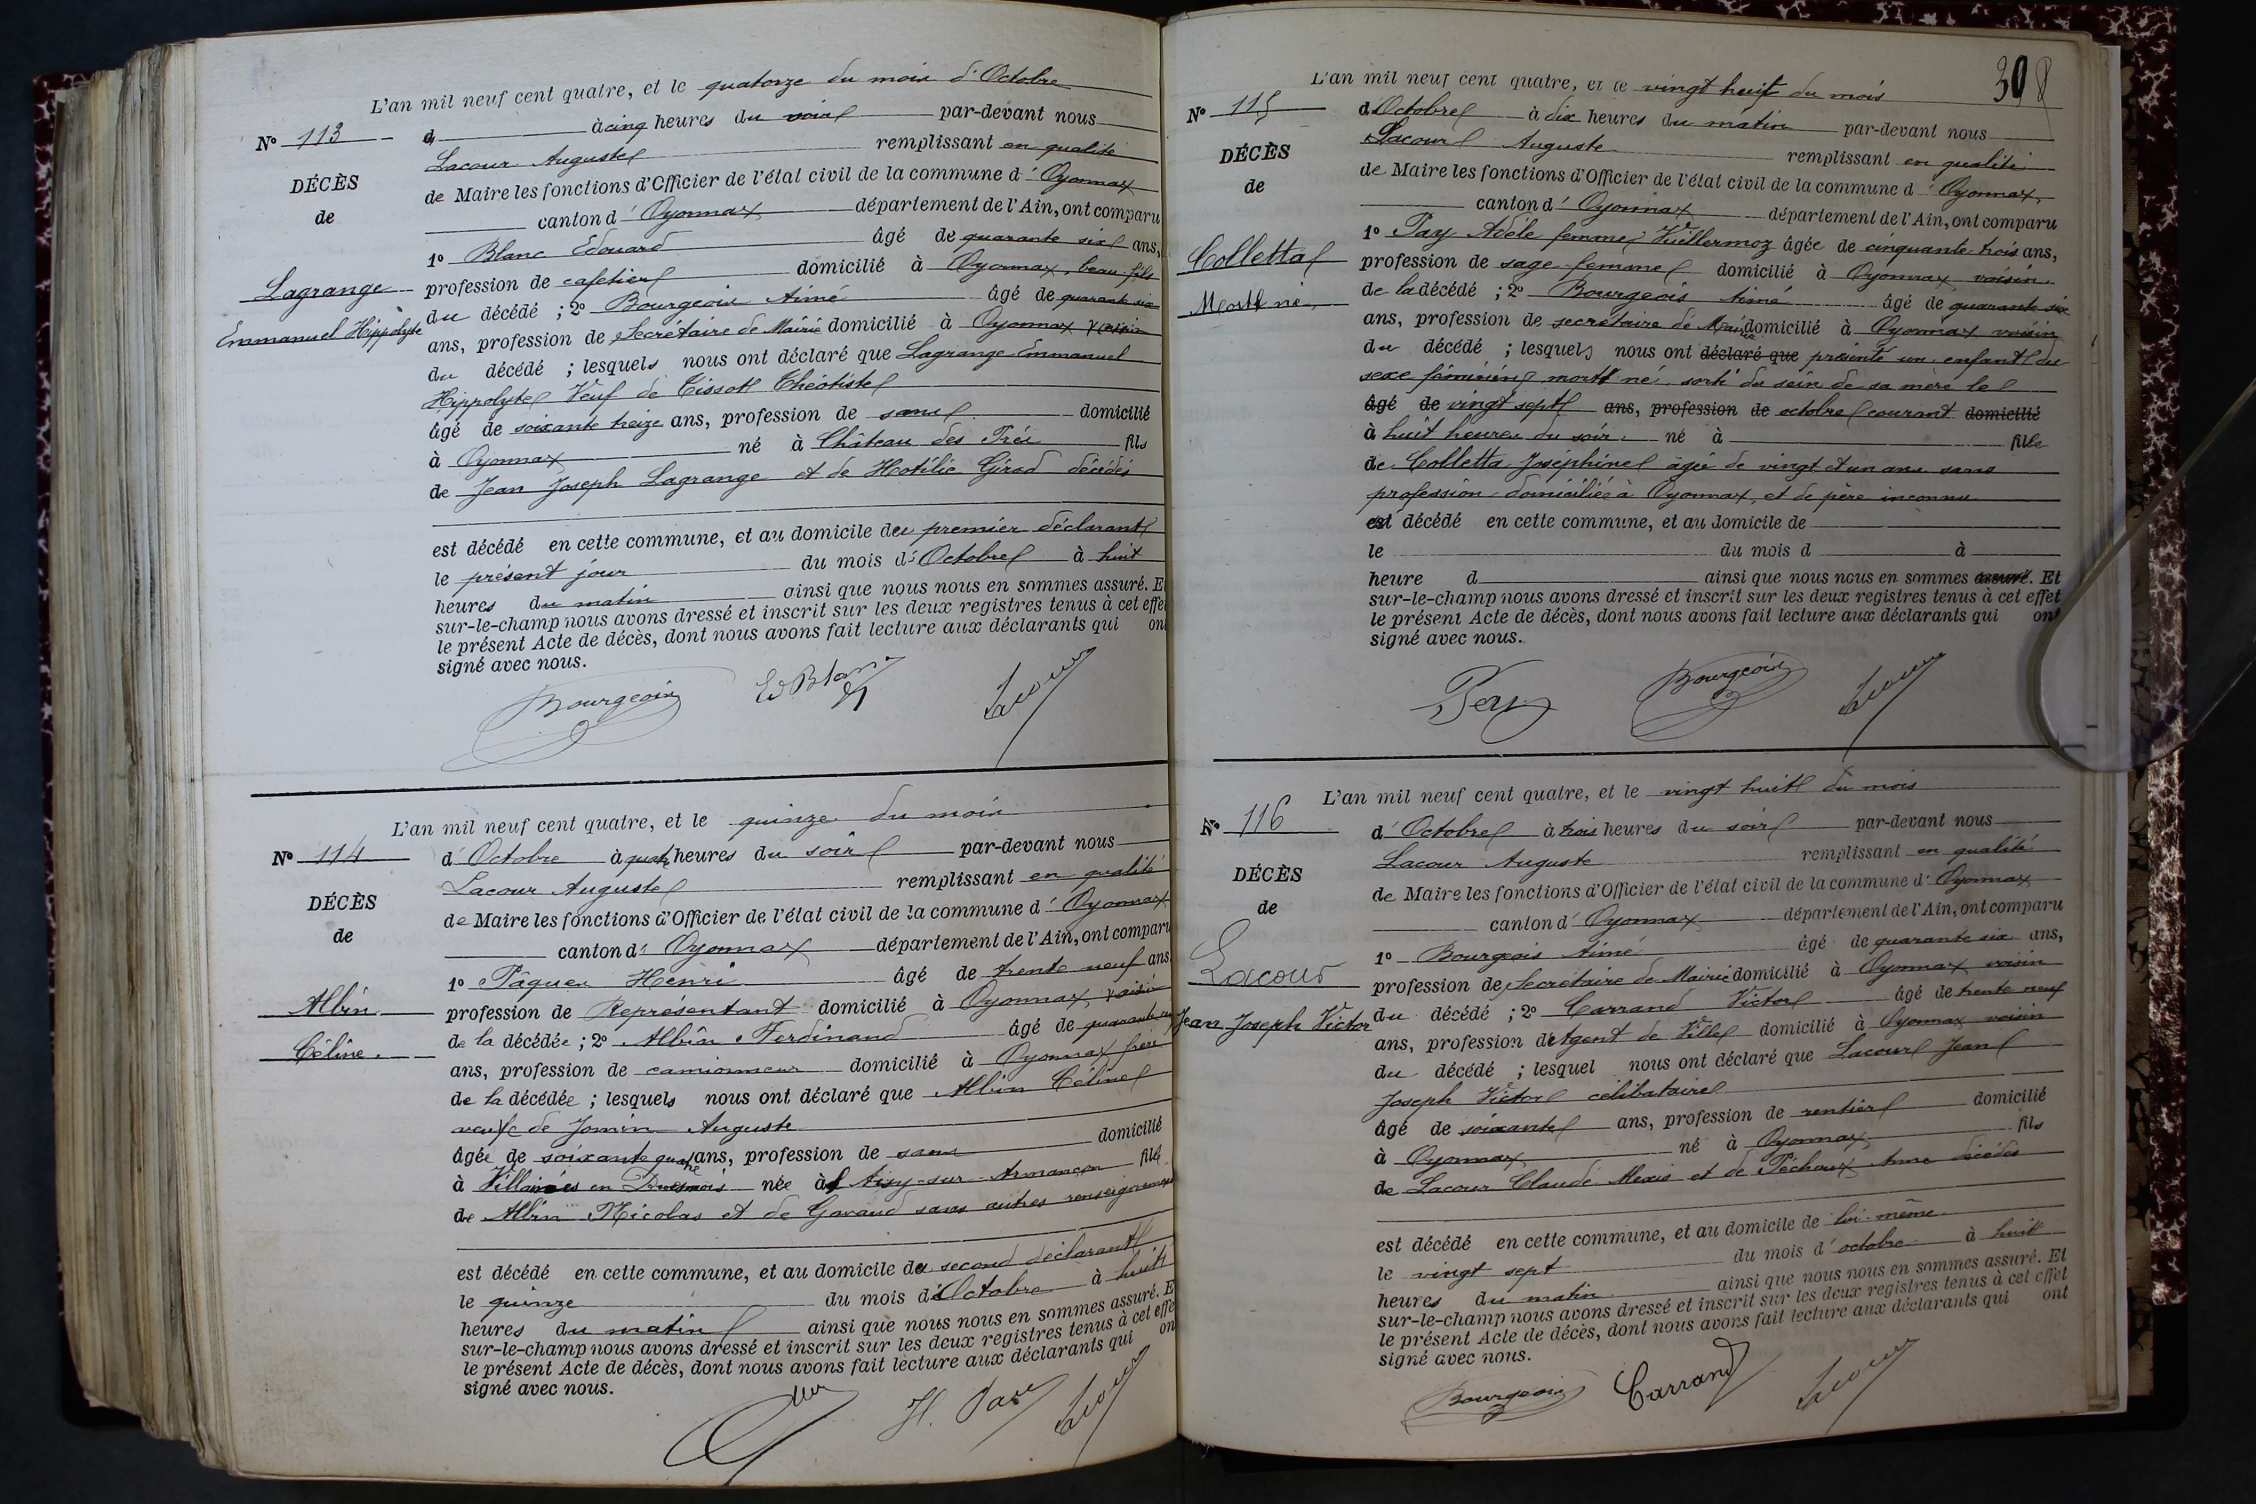 L'an mil neuf cent quatre, et le quatorze du mois d'Octobre
N° 113
d à cinq heures du soir par-devant nous
Lacour Auguste remplissant en qualité
DÉCÈS
de Maire les fonctions d'Officier de l'état civil de la commune d'Oyonnax
de
canton d'Oyonnax département de l'Ain, ont comparu
1° Blanc Edouard âgé de quarante six ans,
Lagrange
profession de cafetier domicilié à Oyonnax, beau-fils
Emmanuel Hippolyte
du décédé ; 2° Bourgeois Aimé âgé de quarante six
ans, profession de Secrétaire de Mairie domicilié à Oyonnax voisin
du décédé ; lesquels nous ont déclaré que Lagrange Emmanuel
Hippolyte Veuf de Tissot Théotiste
âgé de soixante treize ans, profession de sans domicilié
à Oyonnax né à Château des Prés fils
de Jean Joseph Lagrange et de Hotélie Girod décédés
est décédé en cette commune, et au domicile du premier déclarant
le présent jour du mois d'Octobre à huit
heures du matin ainsi que nous nous en sommes assuré. E
sur-le-champ nous avons dressé et inscrit sur les deux registres tenus à cet effe
le présent Acte de décès, dont nous avons fait lecture aux déclarants qui on
signé avec nous.
Bourgeois Ed Blanc Lacour
L'an mil neuf cent quatre, et le quinze du mois
N° 114
d'Octobre à quatre heures du soir par-devant nous
Lacour Auguste remplissant en qualité
DÉCÈS
de Maire les fonctions d'Officier de l'état civil de la commune d'Oyonnax
de
canton d'Oyonnax département de l'Ain, ont comparu
1° Pâques Henri âgé de trente neuf ans
Albin
profession de Représentant domicilié à Oyonnax, voisin
Céline.
de la décédée ; 2° Albin Ferdinand âgé de quarante
ans, profession de camionneur domicilié à Oyonnax frère
de la décédée ; lesquels nous ont déclaré que Albin Céline
veuve de Jomin Auguste
âgée de soixante quatre ans, profession de sans domicilié
à Villaines en Duesmois née à Aisy-sur-Armançon fille
de Albin Nicolas et de Gavaud sans autres renseignements
est décédé en cette commune, et au domicile du second déclarant
le quinze du mois d'Octobre à huit
heures du matin ainsi que nous nous en sommes assuré. E
sur-le-champ nous avons dressé et inscrit sur les deux registres tenus à cet effe
le présent Acte de décès, dont nous avons fait lecture aux déclarants qui on
signé avec nous.
H. Lacour
308
L'an mil neuf cent quatre, et le vingt huit du mois
N° 115
d'Octobre à dix heures du matin par-devant nous
Lacour Auguste remplissant en qualité
DÉCÈS
de Maire les fonctions d'Officier de l'état civil de la commune d'Oyonnax,
de
canton d'Oyonnax département de l'Ain, ont comparu
1° Pay Adèle femme Vuillermoz âgée de cinquante trois ans,
Colletta
profession de sage-femme domicilié à Oyonnax, voisin
Mort né
de la décédé ; 2° Bourgeois Aimé âgé de quarante six
ans, profession de secrétaire de Mairie domicilié à Oyonnax voisin
du décédé ; lesquels nous ont déclaré que présenté un enfant du
sexe féminin mort né sorti du sein de sa mère le
âgé de vingt sept ans, profession de octobre courant domicilié
à huit heures du soir. né à fille
de Colletta Joséphine âgée de vingt et un ans sans
profession domiciliée à Oyonnax, et de père inconnu
est décédé en cette commune, et au domicile de
le du mois d à
heure d ainsi que nous nous en sommes assuré. Et
sur-le-champ nous avons dressé et inscrit sur les deux registres tenus à cet effet
le présent Acte de décès, dont nous avons fait lecture aux déclarants qui ont
signé avec nous.
Bourgeois Lacour
L'an mil neuf cent quatre, et le vingt huit du mois
N° 116
d'Octobre à trois heures du soir par-devant nous
Lacour Auguste remplissant en qualité
DÉCÈS
de Maire les fonctions d'Officier de l'état civil de la commune d'Oyonnax
de
canton d'Oyonnax département de l'Ain, ont comparu
1° Bourgeois Aimé âgé de quarante six ans,
Lacour
profession de Secrétaire de Mairie domicilié à Oyonnax voisin
Jean Joseph Victor
du décédé ; 2° Carrand Victor âgé de trente neuf
ans, profession d'Agent de Ville domicilié à Oyonnax voisin
du décédé ; lesquel nous ont déclaré que Lacour Jean
Joseph Victor célibataire
âgé de soixante ans, profession de rentier domicilié
à Oyonnax né à Oyonnax, fils
de Lacour Claude Alexis et de Péchoux Anne décédés
est décédé en cette commune, et au domicile de lui-même
le vingt sept du mois d'octobre à huit
heures du matin ainsi que nous nous en sommes assuré. Et
sur-le-champ nous avons dressé et inscrit sur les deux registres tenus à cet effet
le présent Acte de décès, dont nous avons fait lecture aux déclarants qui ont
signé avec nous.
Bourgeois Carrand Lacour